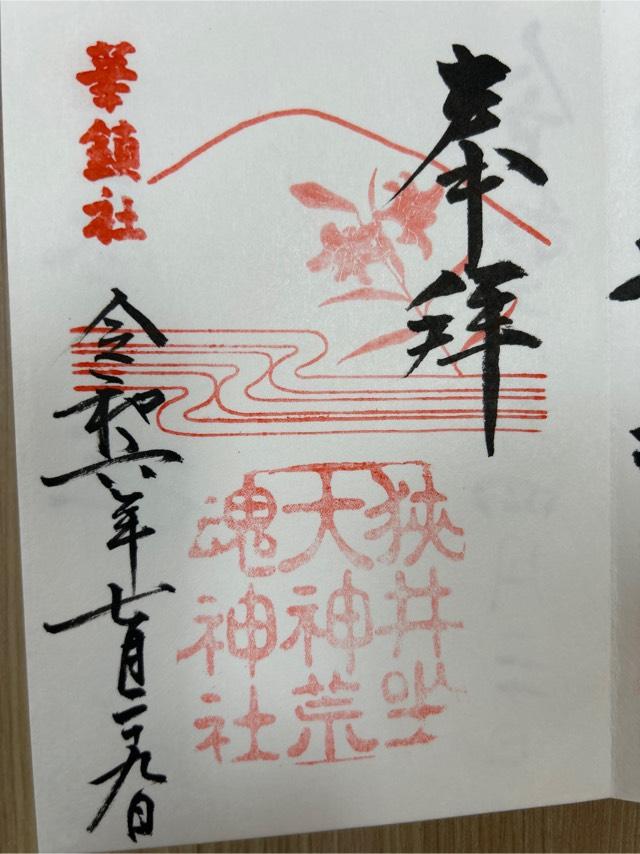 奉拝
狹井坐
大神荒
魂神社
華鎮社
令和六年七月二十九日